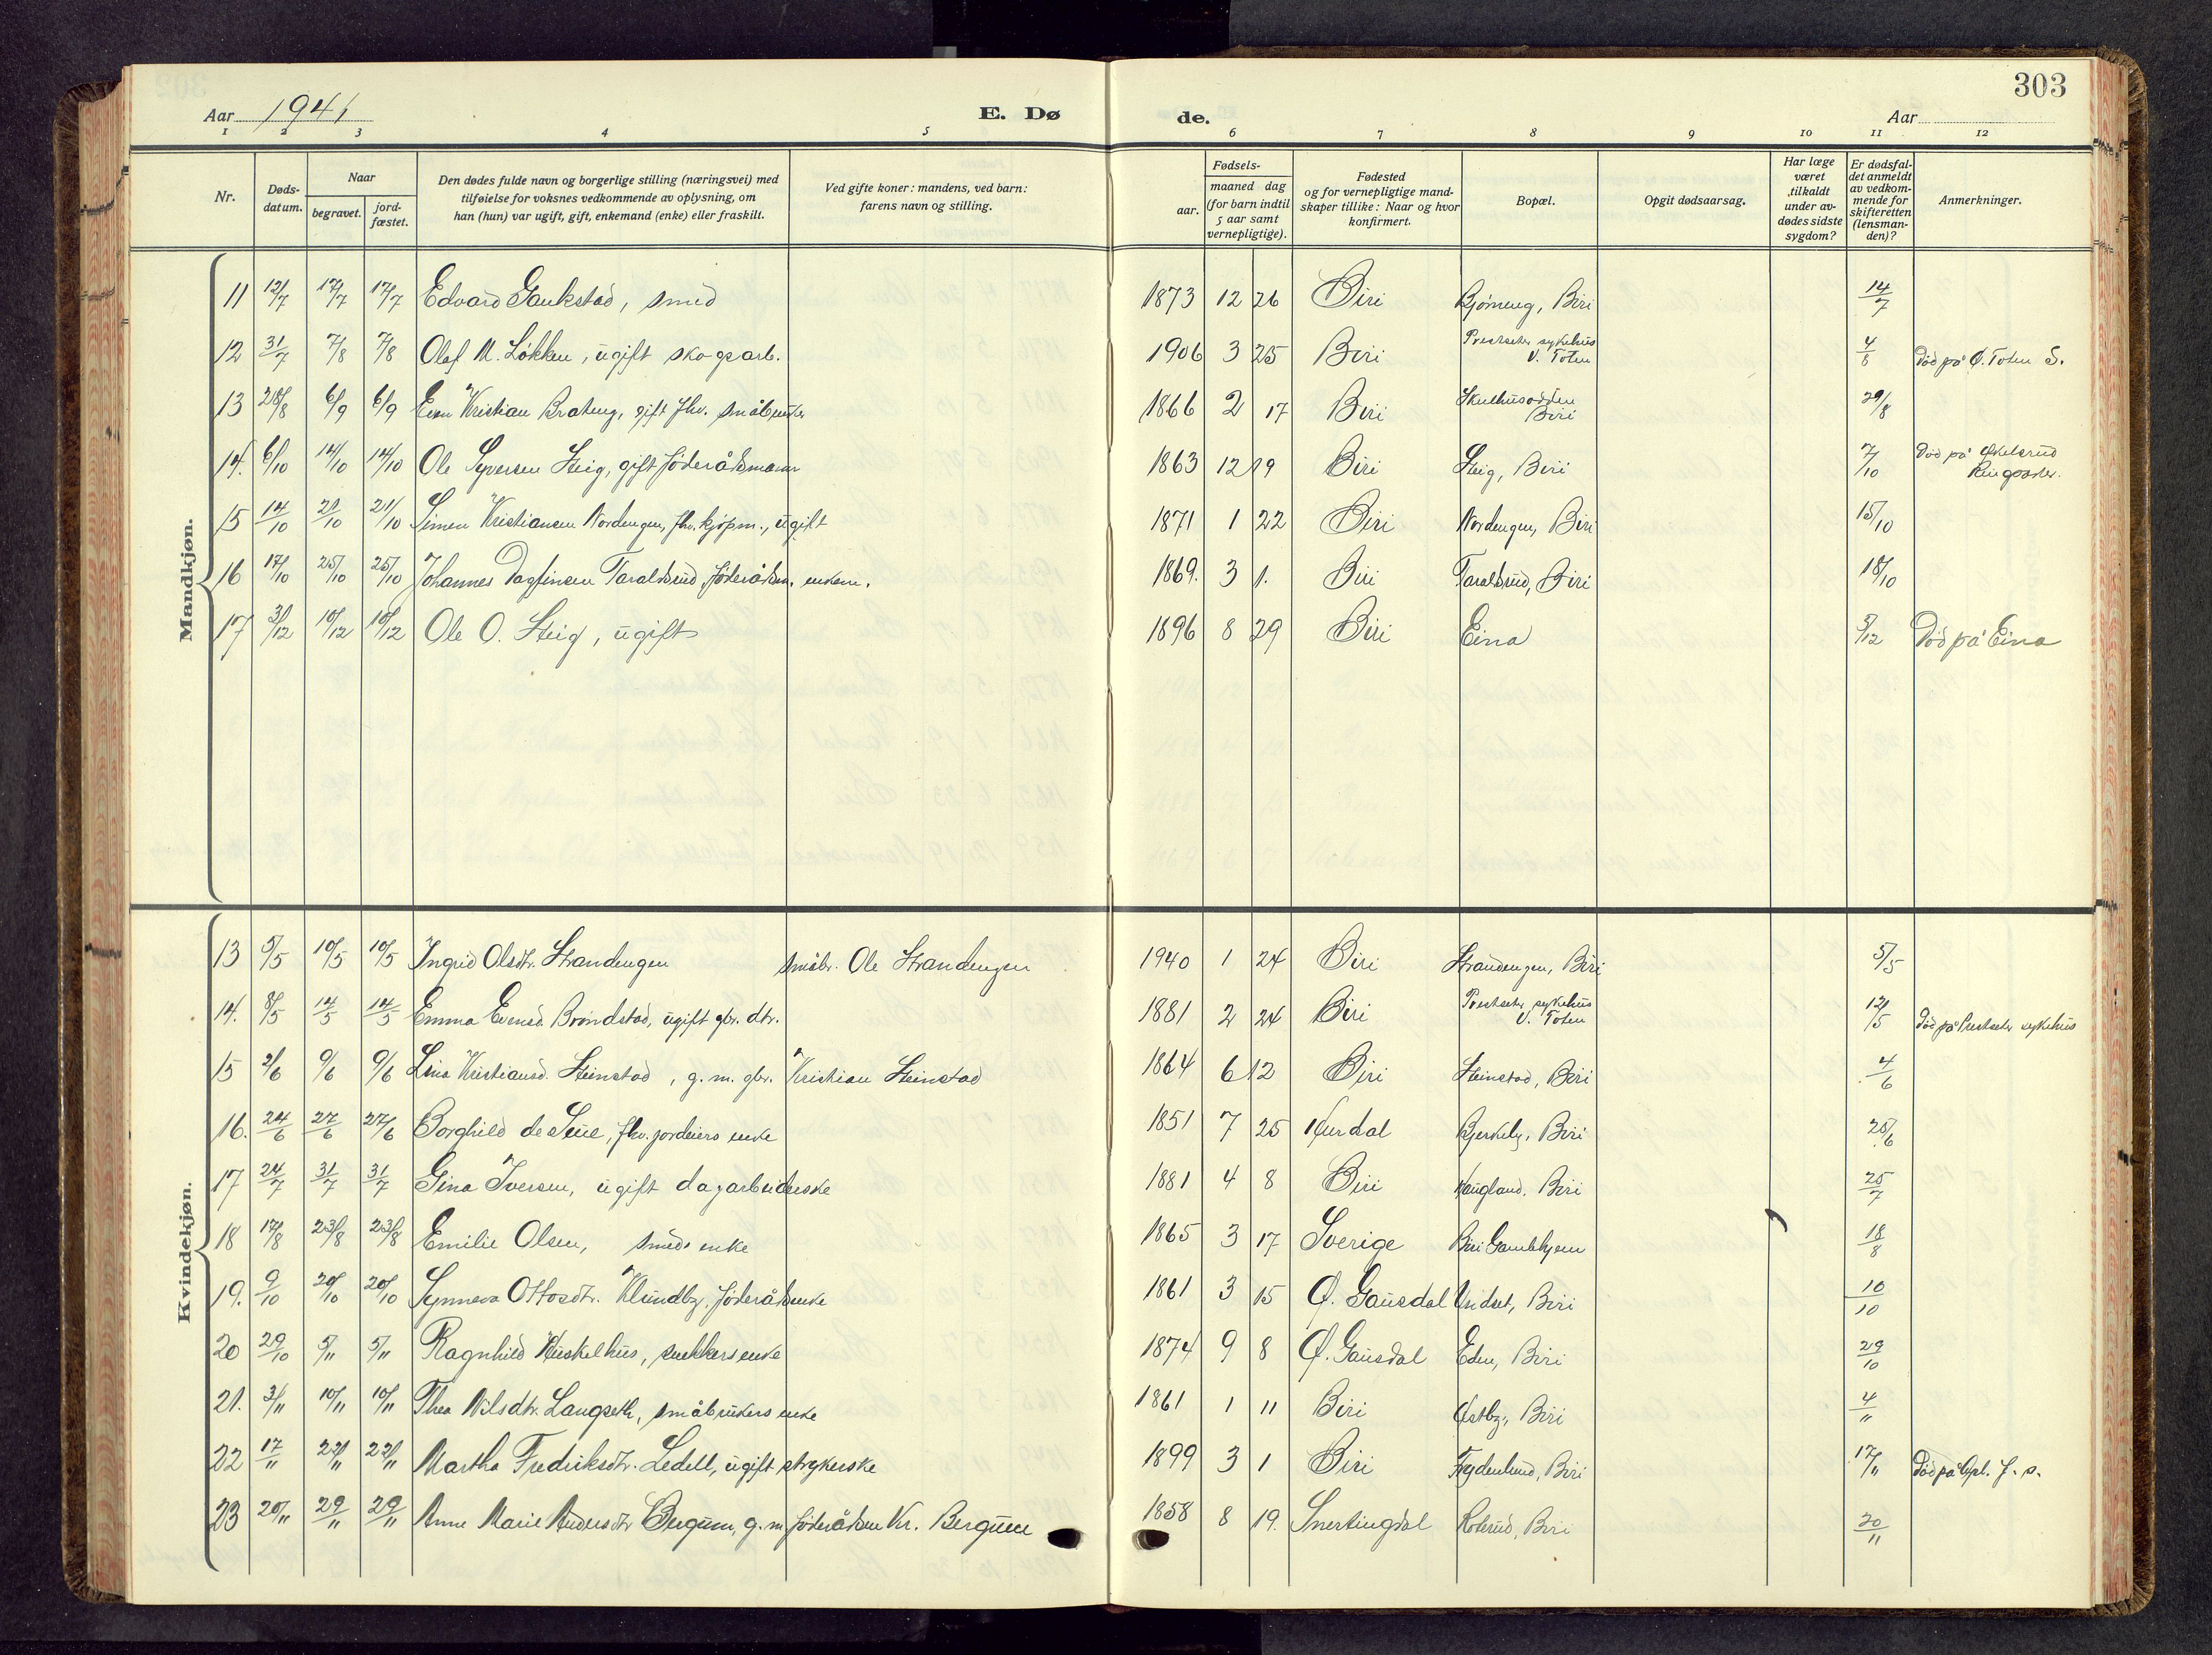 303
Aar 1941
E. Dø
de.
Aar
1 2 3 4 5 6 7 8 9 10 11 12
Nr.
Døds-
datum.
Naar
begravet.
jord-
fæstet.
Den dødes fulde navn og borgerlige stilling (næringsvei) med
tilføielse for voksnes vedkommende av oplysning, om
han (hun) var ugift, gift, enkemand (enke) eller fraskilt.
Ved gifte koner: mandens, ved barn:
farens navn og stilling.
Fødsels-
aar.
maaned dag
(for barn indtil
5 aar samt
vernepligtige).
Fødested
og for vernepligtige mand-
skaper tillike: Naar og hvor
konfirmert.
Bopæl.
Opgit dødsaarsag.
Har læge
været
tilkaldt
under av-
dødes sidste
sygdom?
Er dødsfal-
det anmeldt
av vedkom-
mende for
skifteretten
(lensman-
den)?
Anmerkninger.
Mandkjøn.
11 12/7 17/7 17/7 Edvard Gaukstad, smed 1873 12 26 Biri Bjørneng, Biri 14/7
12 31/7 7/8 7/8 Olaf M. Løkken, ugift skogsarb. 1906 3 25 Biri Prestseter sykehus V. Toten 4/8 Död på Ø. Toten S.
13 28/8 6/9 6/9 Even Kristian Brateng, gift fhv. småbruker 1866 2 17 Biri Skulhusodden Biri 29/8
14. 6/10 14/10 14/10 Ole Syversen Steig, gift föderådsmann 1863 12 19 Biri Steig, Biri 7/10 Död på Ringsaker.
15 14/10 21/10 21/10 Simen Kristiansen Nordengen, fhv. kjøpm., ugift 1871 1 22 Biri Nordengen, Biri 15/10
16 17/10 25/10 25/10 Johannes Dagfinsen Taraldsrud, föderådsm. enkem. 1869. 3 1. Biri Taraldsrud, Biri 18/10
17 3/12 10/12 10/12 Ole O. Steig, ugift 1896 8 29 Biri Eina 5/12 Död på Eina
Kvindekjøn.
13 5/5 10/5 10/5 Ingrid Olsdtr. Strandengen småbr. Ole Strandengen 1940 1 24 Biri Strandengen, Biri 5/5
14. 8/5 14/5 14/5 Emma Evensd. Bröndstad, ugift gbr. dtr. 1881 2 24 Biri Prestseter sykehus V. Toten 12/5 Död på Prestseter sykehus
15 2/6 9/6 9/6 Lina Kristiansd. Steinstad, g. m. gbr. Kristian Steinstad 1864 6 12 Biri Steinstad, Biri 4/6
16. 24/6 27/6 27/6 Borghild de Seue, fhv. jordeiers enke 1851 7 25 Hurdal Bjerkely, Biri 25/6
17 24/7 31/7 31/7 Gina Iversen, ugift dagarbeiderske 1881 4 8 Biri Haugland. Biri 25/7
18 17/8 23/8 23/8 Emilie Olsen, smeds enke 1865 3 17 Sverige Biri Gamlehjem 18/8
19. 9/10 20/10 20/10 Synneva Ottosdtr. Klundby. föderådsenke 1861 3 15 Ø. Gausdal Undset, Biri 10/10
20 29/10 5/11 5/11 Ragnhild Huskelhus, snekkersenke 1874 9 8 Ø. Gausdal Eden, Biri 29/10
21. 3/11 10/11 10/11 Thea Nilsdtr. Langseth, småbrukers enke 1861 1 11 Biri Østby, Biri 4/11
22 17/11 22/11 22/11 Martha Fredriksdtr. Ledell, ugift strykerske 1899 3 1 Biri Frydenlund, Biri 17/11 Död på Gjøv. f. s.
23 20/11 29/11 29/11 Anne Marie Andersdtr Bergum, g. m föderådsm Kr. Bergum 1858 8 19. Snertingdal Roterud, Biri 20/11